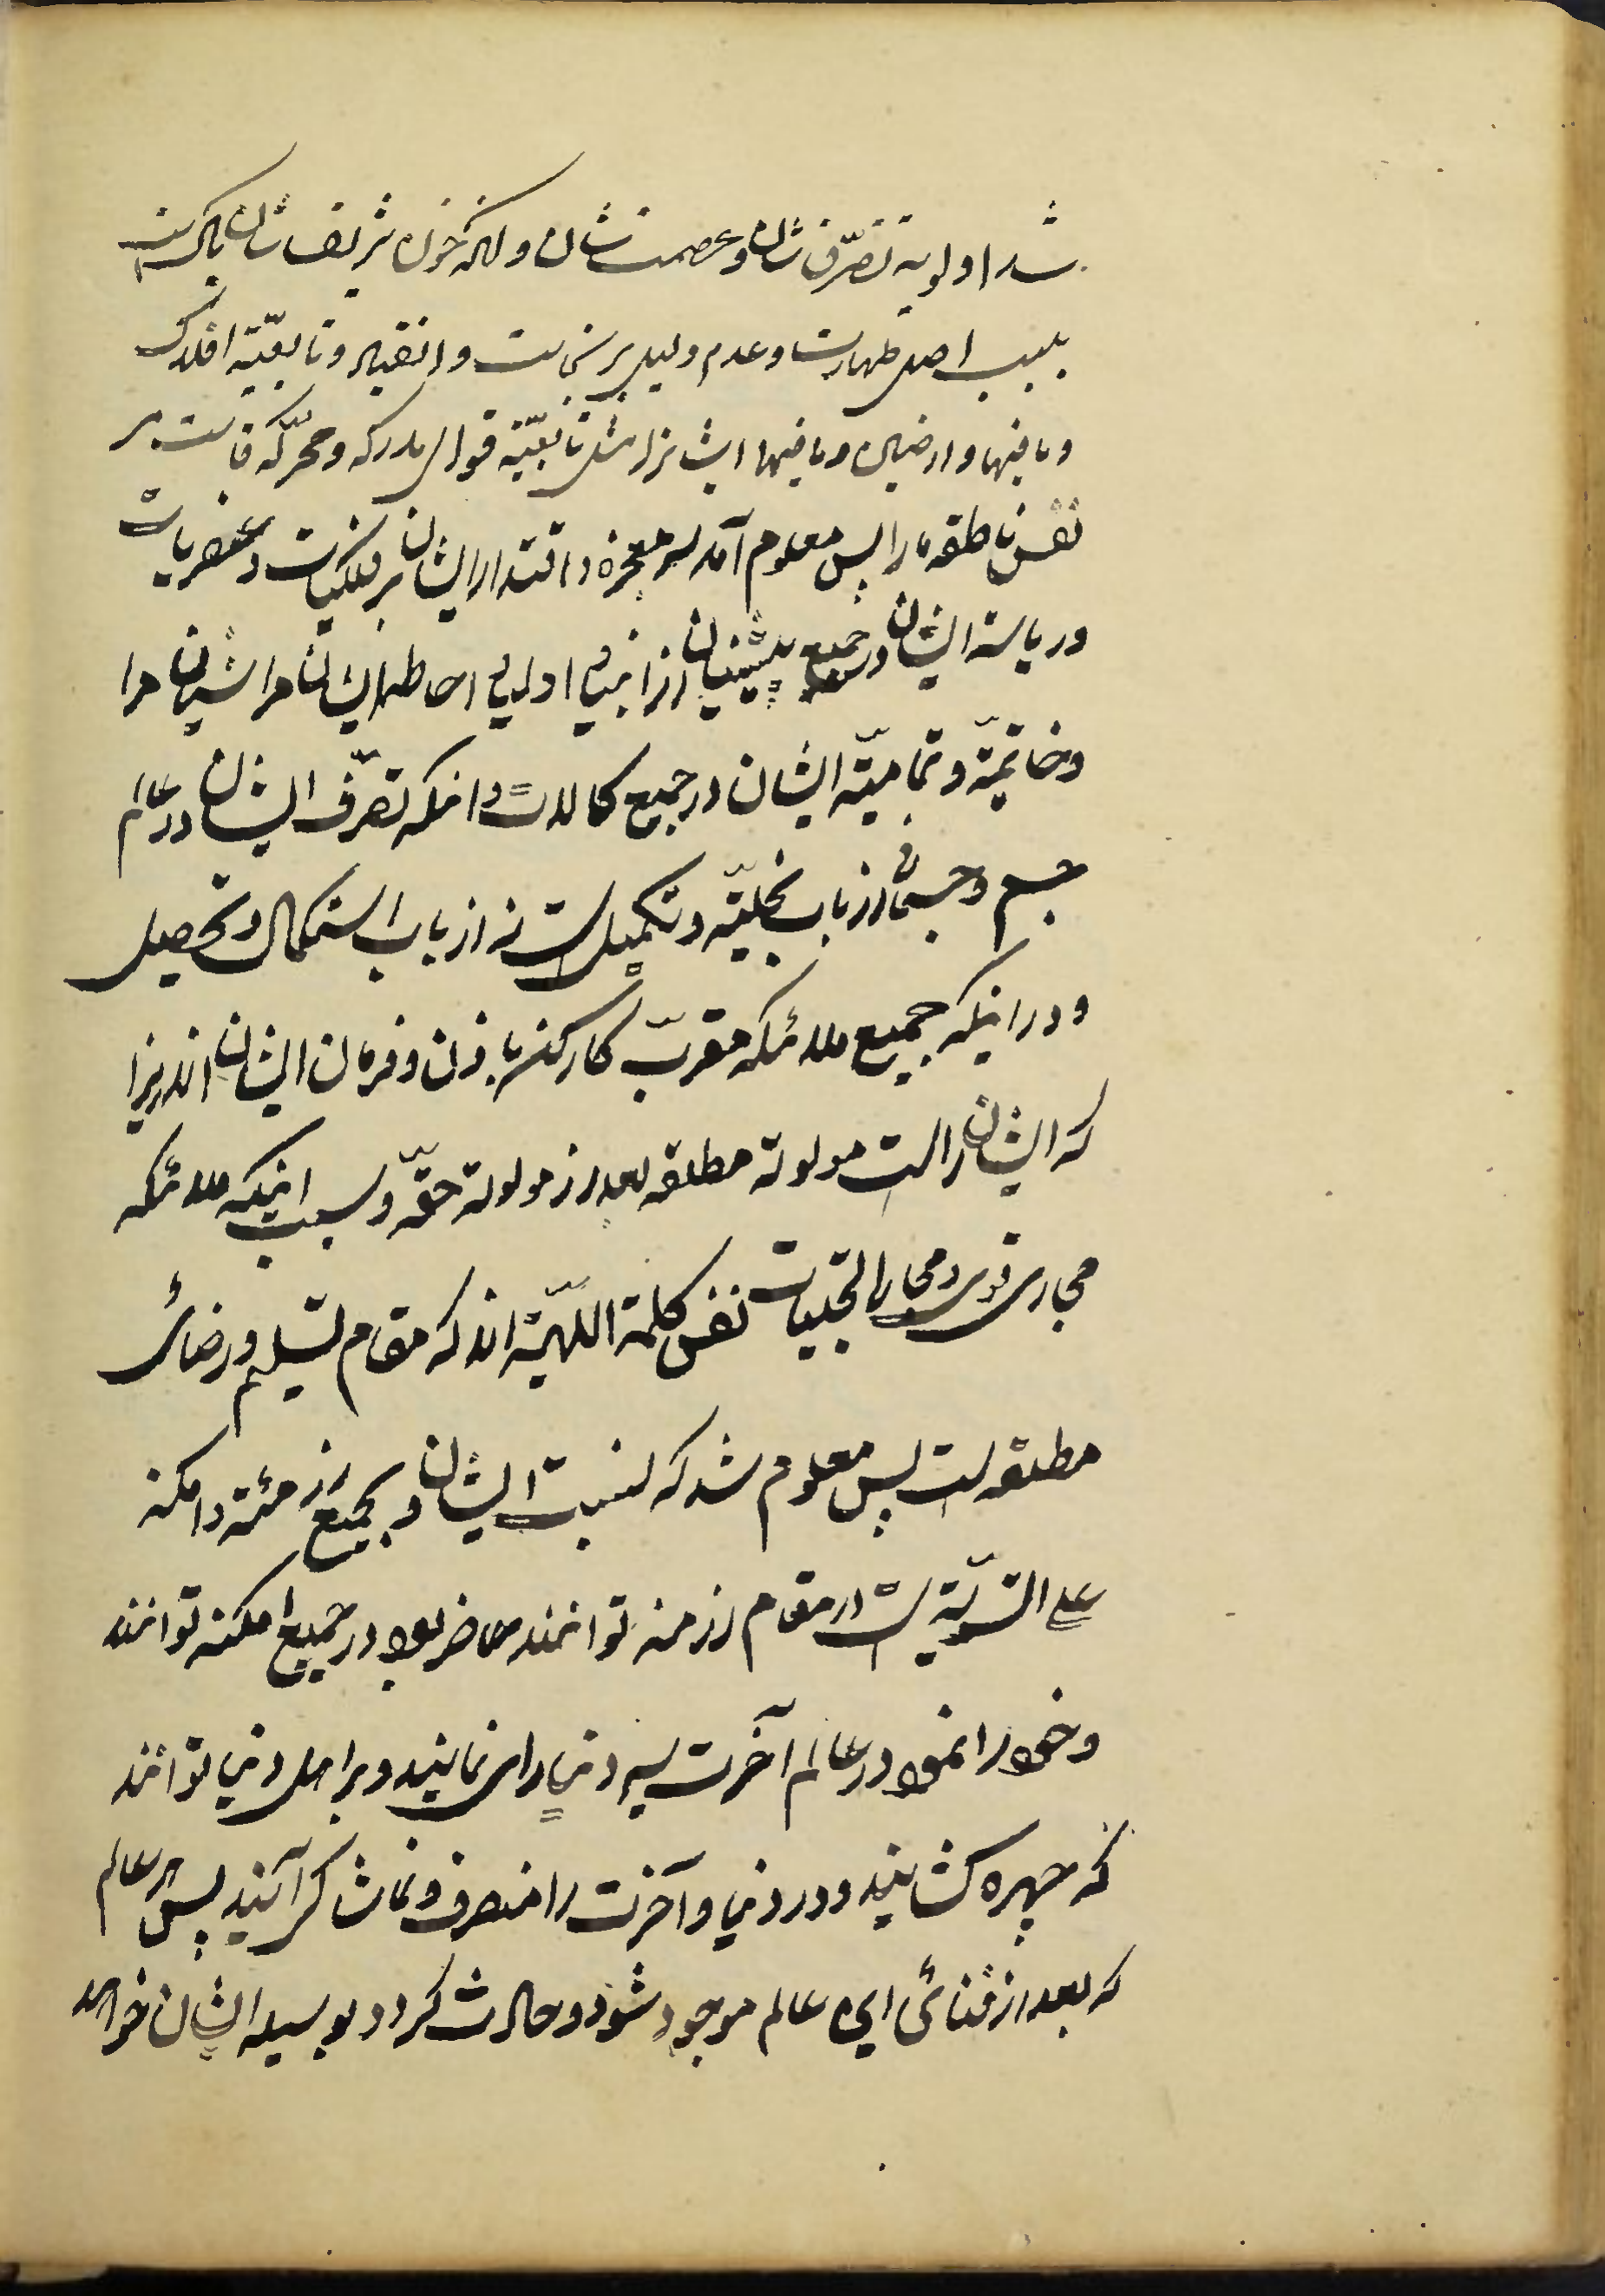 شد اولویة تصرّف شان و عصمت شان و اینکه خون شریف شان پاک است
بسبب اصل طهارت و عدم دلیل بر نجاست و انقیاد و تابعیّة افلاک
و ما فیها و ارضیان و ما فیها ایشانرا مثل تابعیّة قوای مدرکه و محرّکه مر
نفس ناطقه ما را پس معلوم آمد سر معجزه و اقتدار ایشان بر فلکیات و عنصریات
و ریاسة ایشان در جمیع پیشینیان از انبیا و اولیا و احاطه ایشان مر ایشان را
و خاتمیّة و تمامیّة ایشان در جمیع کمالات و اینکه تصرّف ایشان در عالم
جسم و جسمانی از باب تحلیّه و تکمیل است نه از باب استکمال و تحصیل
و در اینکه جمیع ملائکه مقرّب کارکنان باذن و فرمان ایشان اند زیرا
که ایشان راست مولویة مطلقه بعد از مولویة حقّه و سبب اینکه ملائکه
مجاری قوی و مجارا تجلیات نفس کلمة اللهیّة اند که مقام تسلیم و رضای
مطلقه است پس معلوم شد که نسبت ایشان و بجمیع ازمنة و امکنه
علی السّویّة است در مقام ازمنه توانند حاضر بود در جمیع امکنه توانند
و خود را نمود در عالم آخرت سیر دنیا را می نمایند و بر اهل دنیا توانند
که چهره گشایند و در دنیا و آخرت را منصرف و تماشاگر آیند پس هر عالم
که بعد از فنائی این عالم موجود شود و حادث گردد بوسیله ایشان خواهد